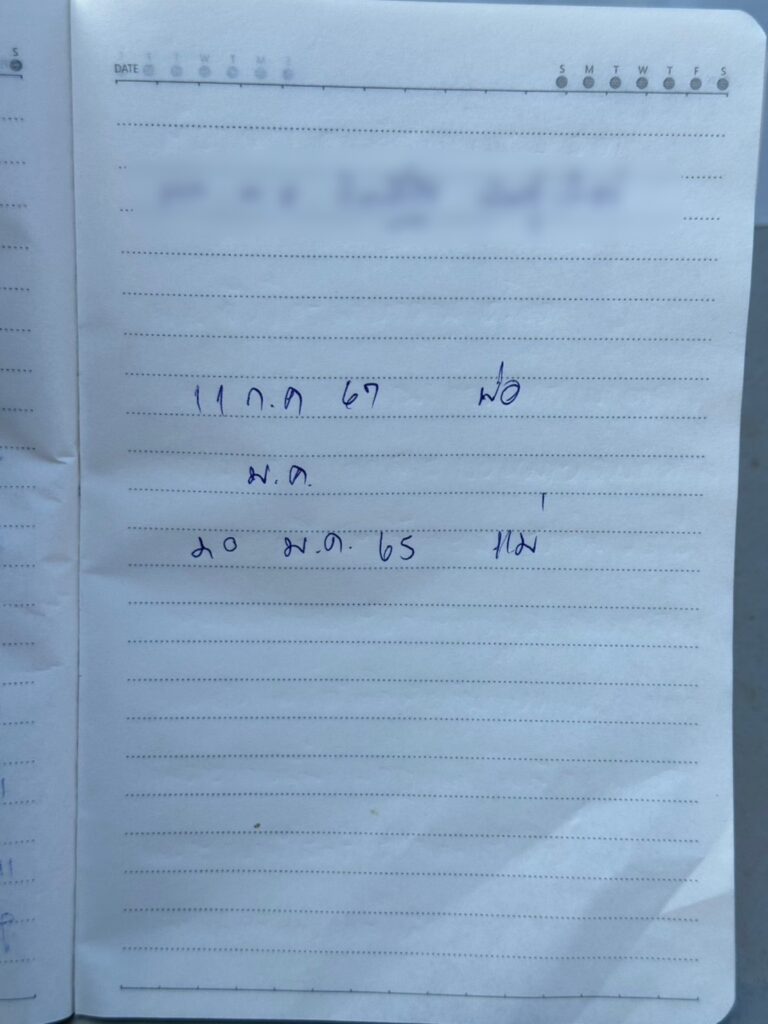 S
DATE S M T W T F S
11 ก.ค 67 พ่อ
ม.ค.
20 ม.ค. 65 แม่